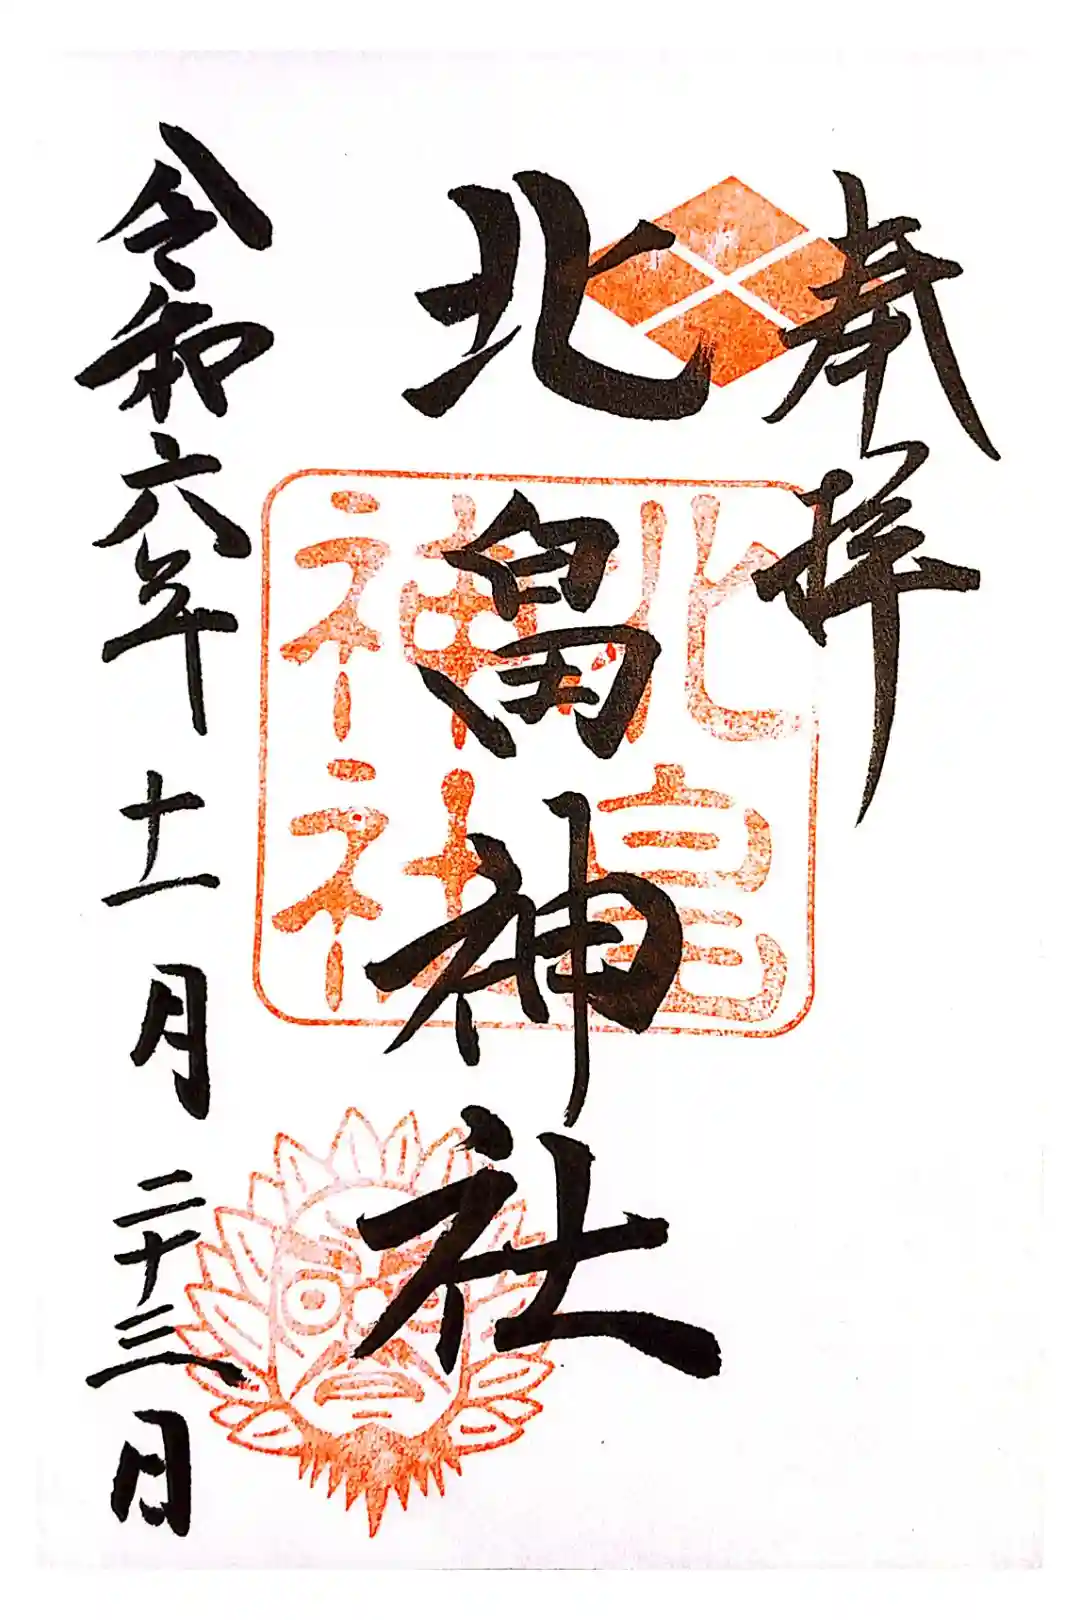 奉拝
北畠神社
令和六年十一月二十三日
北畠
神社